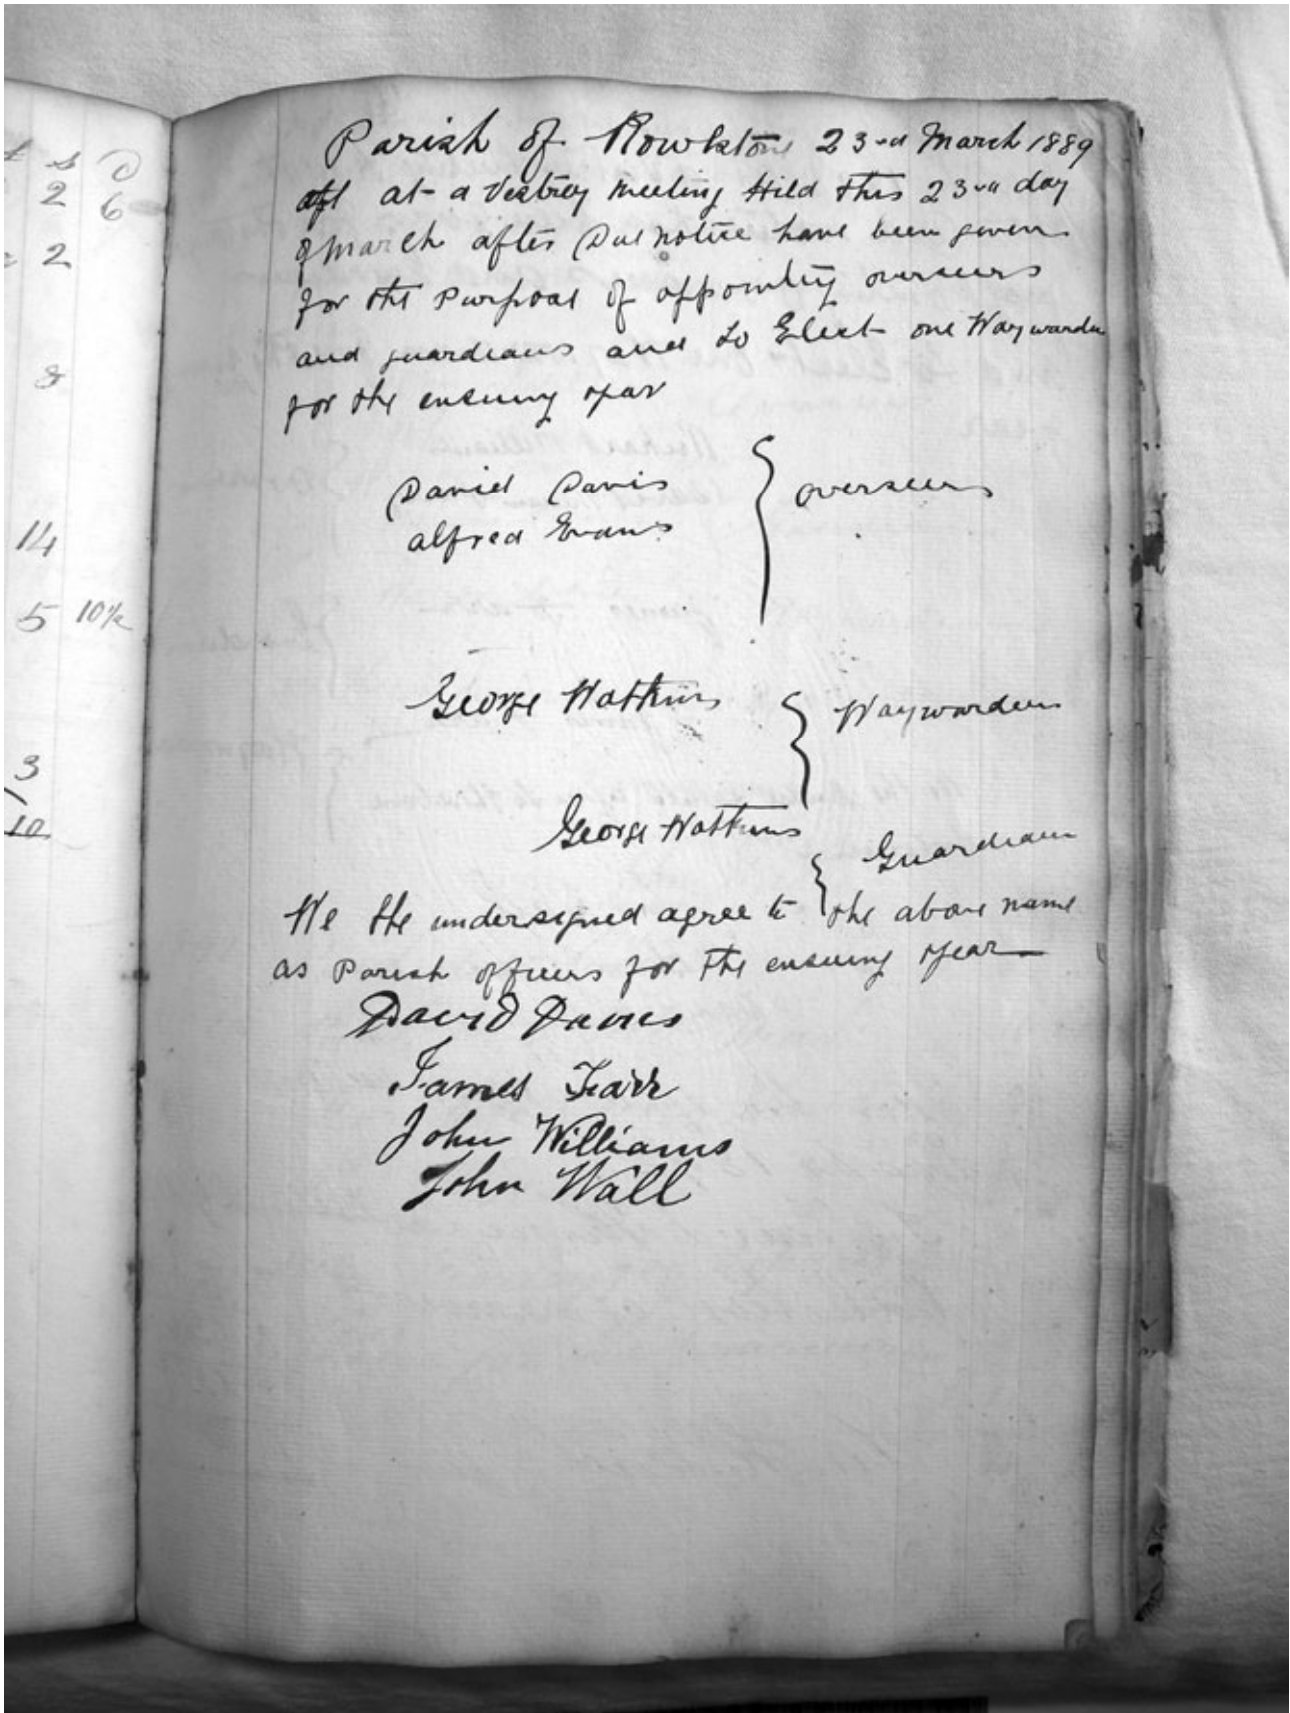 £ s D
2 6
2
8
14
5 10½
3
10
Parish of Rowlstone 23rd March 1889
at a Vestrey Meeting Hild this 23rd day
of March after Due notice have been given
for the Purpose of appointing overseers
and guardians and to Elect one Waywarden
for the ensuing year
David Davis
overseers
Alfred Evans
George Watkins
Waywardens
George Watkins
Guardian
We the undersigned agree to the above name
as Parish officers for the ensuing year
David Davies
James Farr
John Williams
John Wall